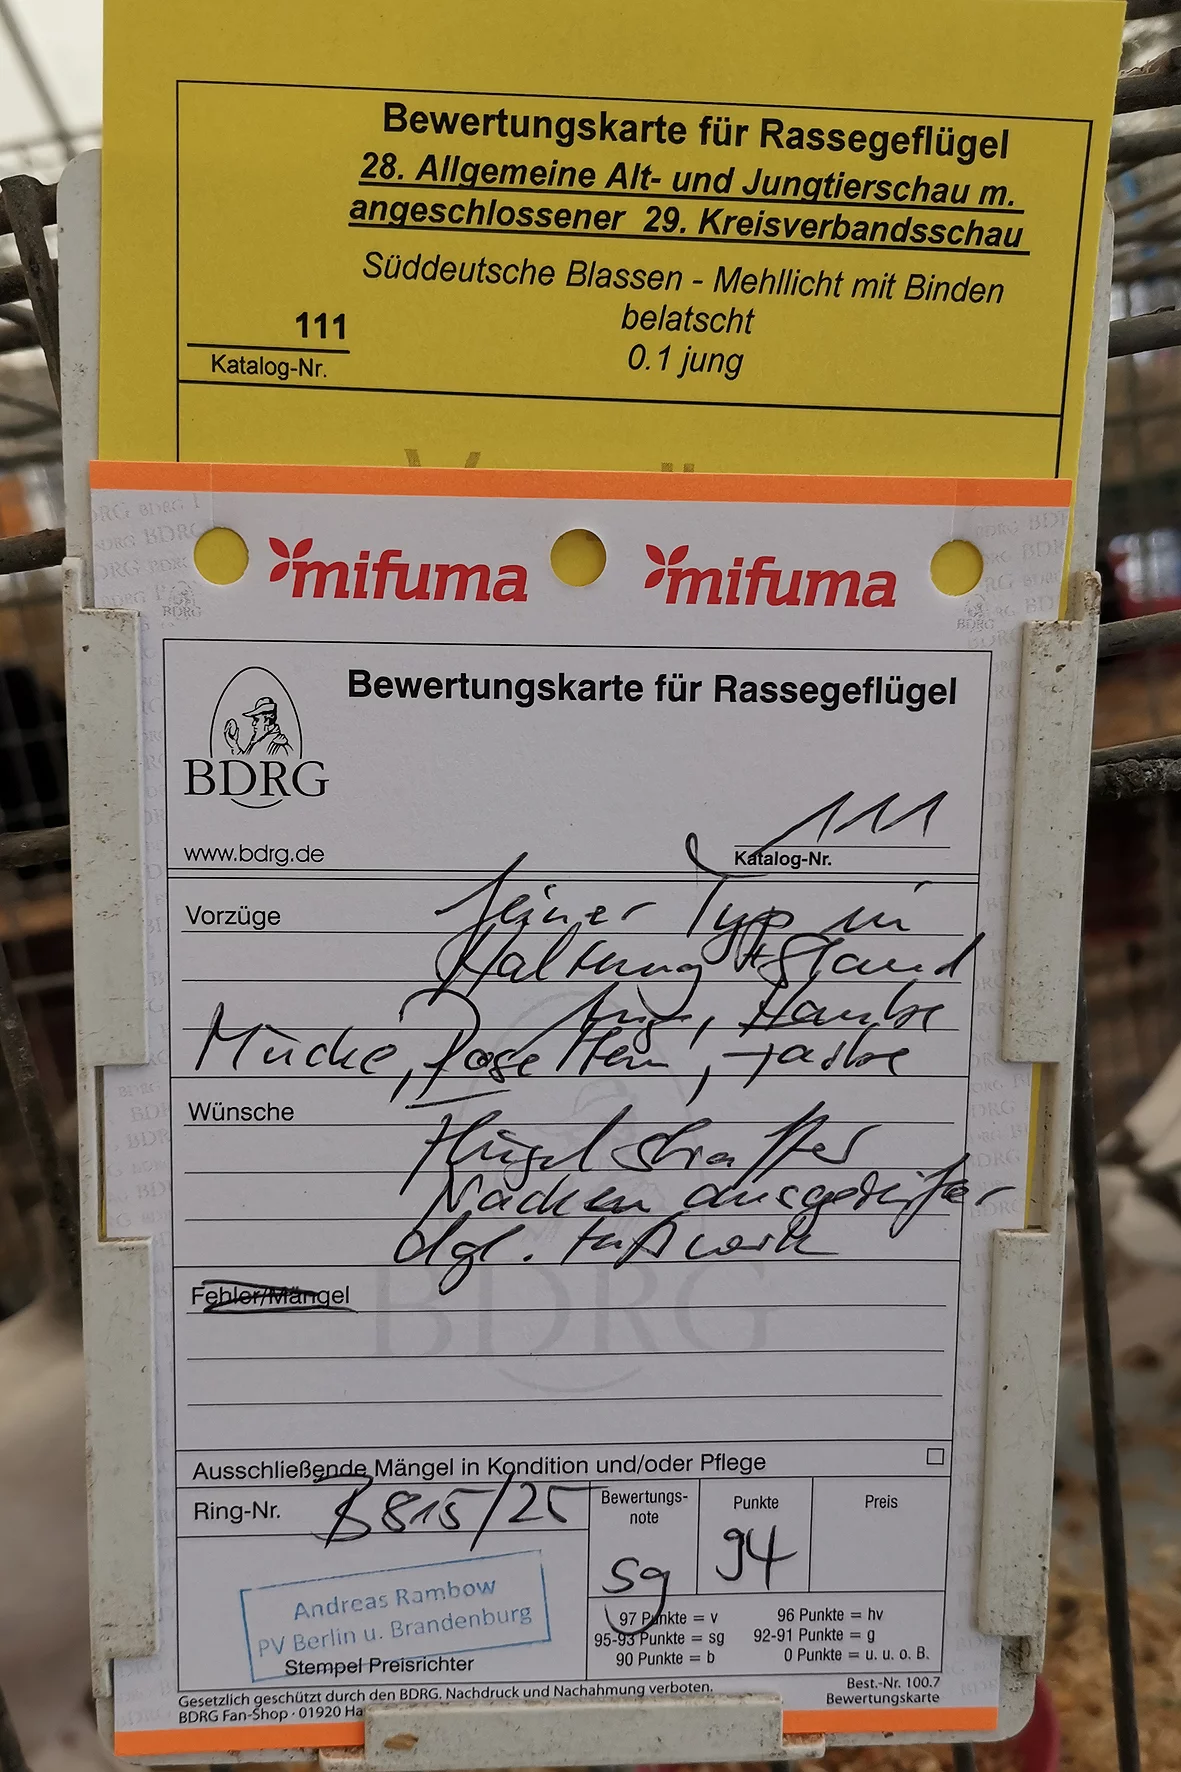 Bewertungskarte für Rassegeflügel
28. Allgemeine Alt- und Jungtierschau m.
angeschlossener 29. Kreisverbandsschau
Süddeutsche Blassen - Mehllicht mit Binden
belatscht
0.1 jung
111
Katalog-Nr.
mifuma mifuma
Bewertungskarte für Rassegeflügel
BDRG
www.bdrg.de
111
Katalog-Nr.
Vorzüge
feiner Typ in
Haltung + Stand
Aug, Haube
Mücke, Rosetten, Farbe
Wünsche
Flügel straffer
Nacken ausgereifter
dgl. Fußwerk
Fehler/Mängel
BDRG
Ausschließende Mängel in Kondition und/oder Pflege
Ring-Nr. B 815/25
Bewertungs-
note
sg
Punkte
94
Preis
Andreas Rambow
PV Berlin u. Brandenburg
Stempel Preisrichter
97 Punkte = v 96 Punkte = hv
95-93 Punkte = sg 92-91 Punkte = g
90 Punkte = b 0 Punkte = u. u. o. B.
Gesetzlich geschützt durch den BDRG. Nachdruck und Nachahmung verboten.
BDRG Fan-Shop · 01920 Ha
Best.-Nr. 100.7
Bewertungskarte